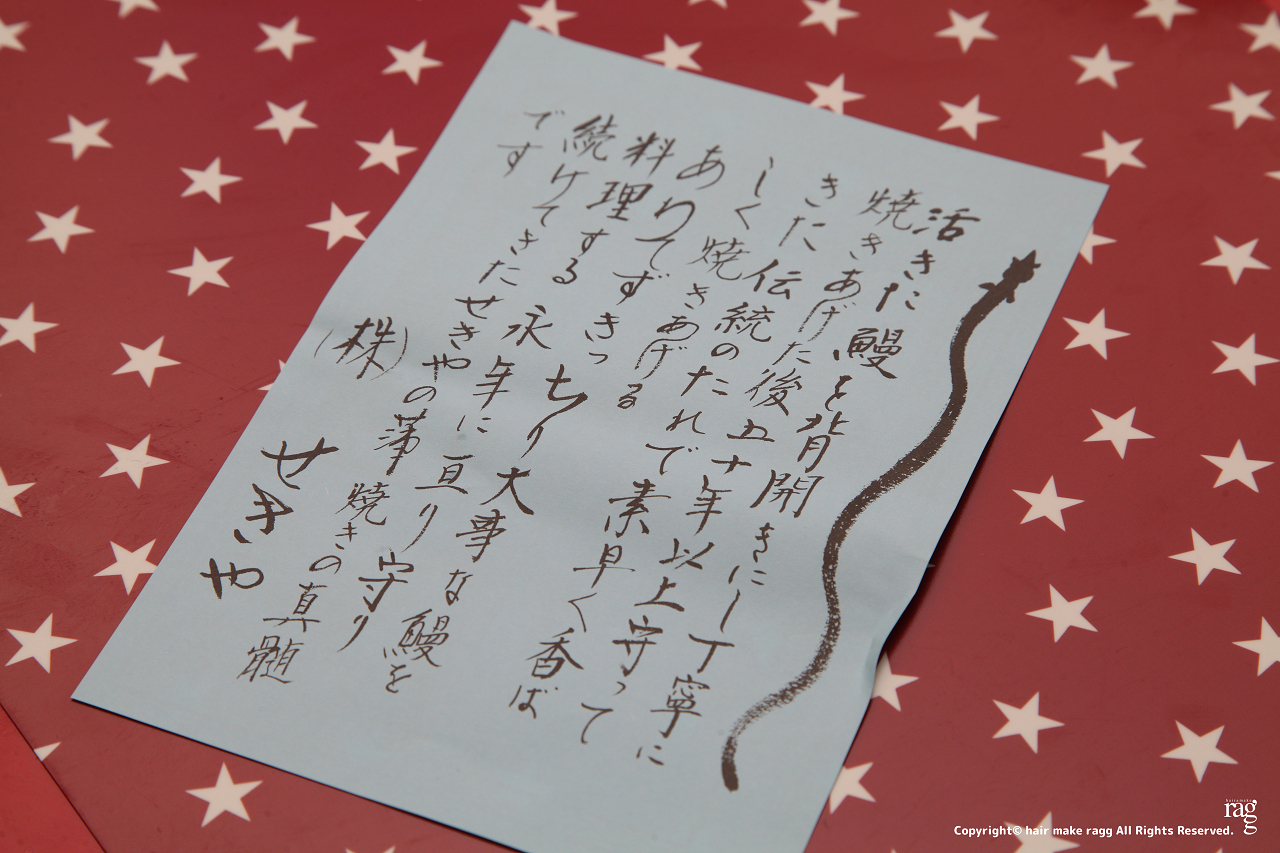 活きた鰻を背開きにし丁寧に
焼きあげた後五十年以上守って
きた伝統のたれで素早く香ば
しく焼きあげる
あわてずきっちり大事な鰻を
料理する 永年に亘り守り
続けてきたせきやの蒲焼きの真髄
です
(株)せきや
ragg
Copyright© hair make ragg All Rights Reserved.